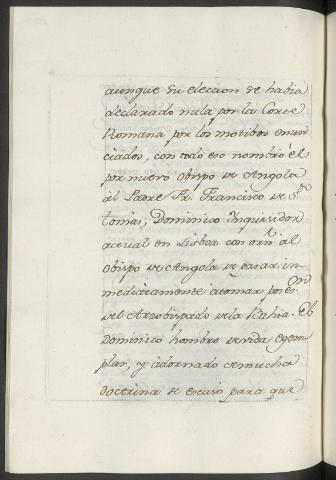 aunque su eleccion se habia
declarado nula por la Corte
Romana por los motibos enun
ciados, con todo eso nombró él
por nuevo obispo de Angola
al Padre Fr. Francisco de Sto
tomas, Dominico Inquisidor
actual en Lisboa con orn. al
obispo de Angola de pasar in
mediatamente atomar posesn
del Arzobispado dela Bahia. El
Dominico hombre devida egem
plar, y adornado demucha
doctrina se escusó para que